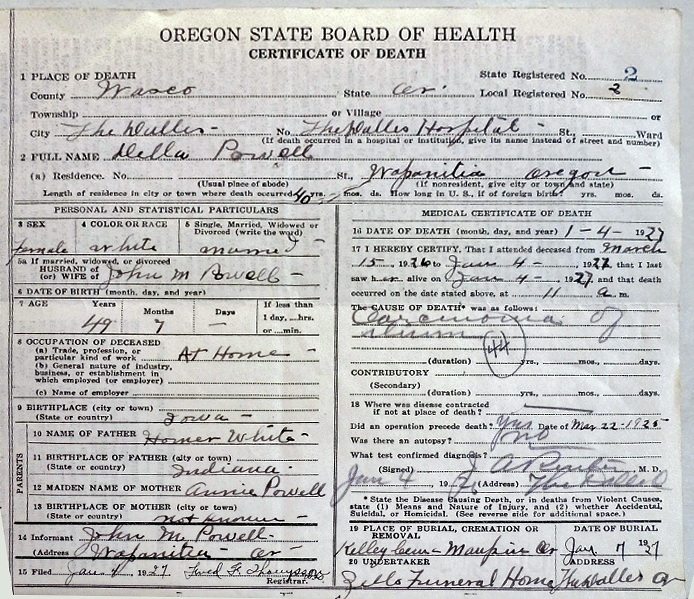 OREGON STATE BOARD OF HEALTH
CERTIFICATE OF DEATH
1 PLACE OF DEATH
State Registered No. 2
County Wasco State Or. Local Registered No. 2
Township or Village or
City The Dalles - No. The Dalles Hospital - St., Ward
(If death occurred in a hospital or institution, give its name instead of street and number)
2 FULL NAME Della Powell
(a) Residence. No. St., Wapanitia Oregon -
(Usual place of abode) (If nonresident, give city or town and state)
Length of residence in city or town where death occurred 40 yrs. - mos. ds. How long in U. S., if of foreign birth? yrs. mos. ds.
PERSONAL AND STATISTICAL PARTICULARS
3 SEX 4 COLOR OR RACE 5 Single, Married, Widowed or Divorced (write the word)
female white married -
5a If married, widowed, or divorced
HUSBAND of
(or) WIFE of John M Powell -
6 DATE OF BIRTH (month, day, and year)
7 AGE Years Months Days If less than
1 day,....hrs.
or ....min.
49 7 -
8 OCCUPATION OF DECEASED
(a) Trade, profession, or
particular kind of work At Home -
(b) General nature of industry,
business, or establishment in
which employed (or employer)
(c) Name of employer
9 BIRTHPLACE (city or town)
(State or country) Iowa -
PARENTS
10 NAME OF FATHER Homer White -
11 BIRTHPLACE OF FATHER (city or town)
(State or country) Indiana -
12 MAIDEN NAME OF MOTHER Annie Powell
13 BIRTHPLACE OF MOTHER (city or town)
(State or country) not known -
14 Informant John M. Powell -
(Address Wapanitia - Or -
15 Filed Jan 4 1927 Fred F. Thompson
Registrar.
MEDICAL CERTIFICATE OF DEATH
16 DATE OF DEATH (month, day, and year) 1 - 4 - 1927
17 I HEREBY CERTIFY, That I attended deceased from March
15, 1926 to Jan 4 - , 1927 that I last
saw her alive on Jan 4 - , 1927, and that death
occurred on the date stated above, at 11 a m.
The CAUSE OF DEATH* was as follows:
Carcinoma of
44
(duration) yrs. mos. days.
CONTRIBUTORY
(Secondary)
(duration) yrs. mos. days.
18 Where was disease contracted
if not at place of death?
Did an operation precede death? Yes Date of Mar 22 - 1925
Was there an autopsy? no
What test confirmed diagnosis?
(Signed) J A M. D.
Jan 4 19 27 (Address) The Dalles
* State the Disease Causing Death, or in deaths from Violent Causes,
state (1) Means and Nature of Injury, and (2) whether Accidental,
Suicidal, or Homicidal. (See reverse side for additional space.)
19 PLACE OF BURIAL, CREMATION OR REMOVAL DATE OF BURIAL
Kelley Cem - Maupin Or Jan 7 1927
20 UNDERTAKER ADDRESS
Funeral Home The Dalles Or